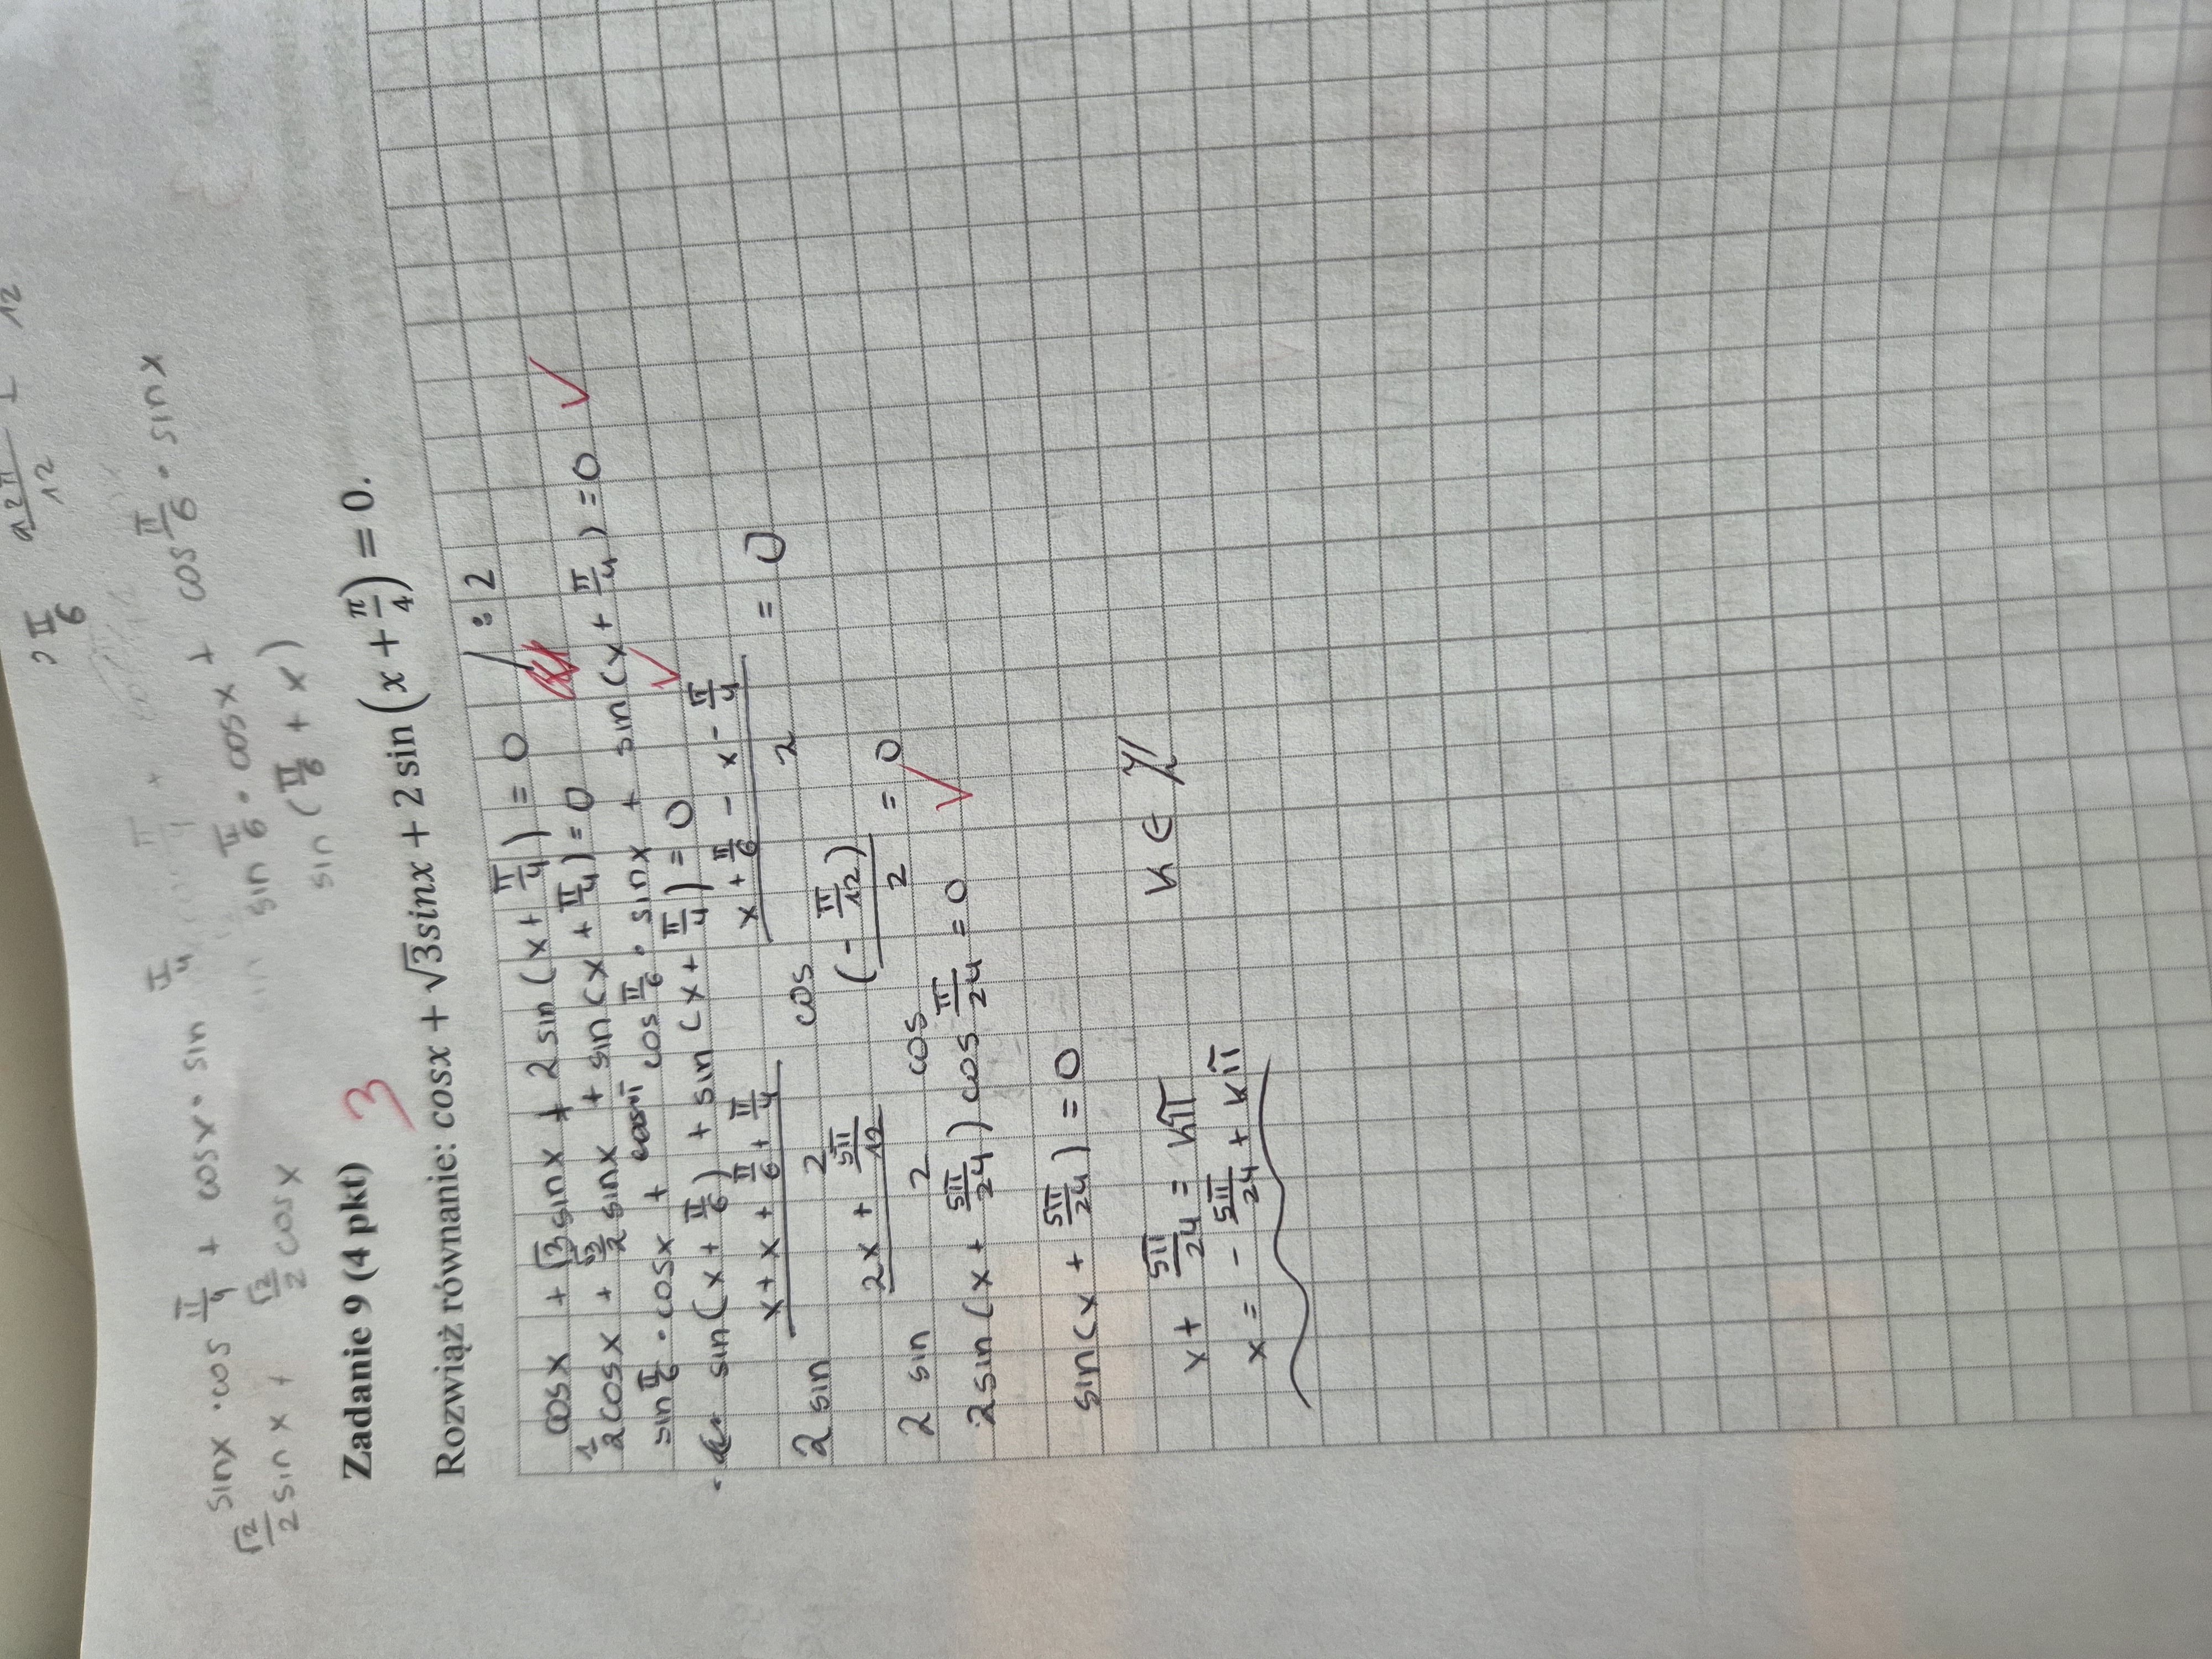 π/6 2π/12
12
sinx · cos π/4 + cosx · sin π/4
√2/2 sinx + √2/2 cosx
sin π/6 · cosx + cos π/6 · sinx
sin (π/6 + x)
Zadanie 9 (4 pkt) 3
Rozwiąż równanie: cosx + √3sinx + 2 sin (x + π/4) = 0.
cosx + √3sinx + 2sin(x + π/4) = 0 / : 2
1/2cosx + √3/2sinx + sin(x + π/4) = 0
sin π/6 · cosx + cos π/6 · sinx + sin(x + π/4) = 0 ✓
sin(x + π/6) + sin(x + π/4) = 0 ✓
2 sin (x + x + π/6 + π/4)/2 cos (x + π/6 - x - π/4)/2 = 0
2 sin (2x + 5π/12)/2 cos (-π/12)/2 = 0
2sin(x + 5π/24) cos π/24 = 0 ✓
sin(x + 5π/24) = 0
x + 5π/24 = kπ k ∈ ℤ
x = - 5π/24 + kπ